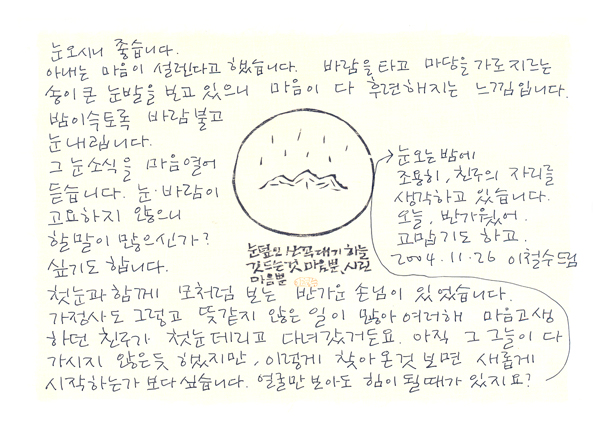 눈오시니 좋습니다.
아내는 마음이 설렌다고 했습니다. 바람을 타고 마당을 가로지르는
송이 큰 눈발을 보고 있으니 마음이 다 후련해지는 느낌입니다.
밤이슥토록 바람불고
눈내립니다.
그 눈소식을 마음열어
듣습니다. 눈·바람이
고요하지 않으니
할말이 많으신가?
싶기도 합니다.
눈덮인 산꼭대기 하늘
깃드는것 마음뿐, 시린
마음뿐
첫눈과 함께 모처럼 보는 반가운 손님이 있었습니다.
가정사도 그렇고 뜻같지 않은 일이 많아 여러해 마음고생
하던 친구가 첫눈데리고 다녀갔거든요. 아직 그 그늘이 다
가시지 않은듯 했지만, 이렇게 찾아온것 보면 새롭게
시작하는가 보다 싶습니다. 얼굴만 보아도 힘이 될때가 있지요?
눈오는밤에
조용히, 친구의 자리를
생각하고 있습니다.
오늘, 반가웠어.
고맙기도 하고.
2004.11.26 이철수드림